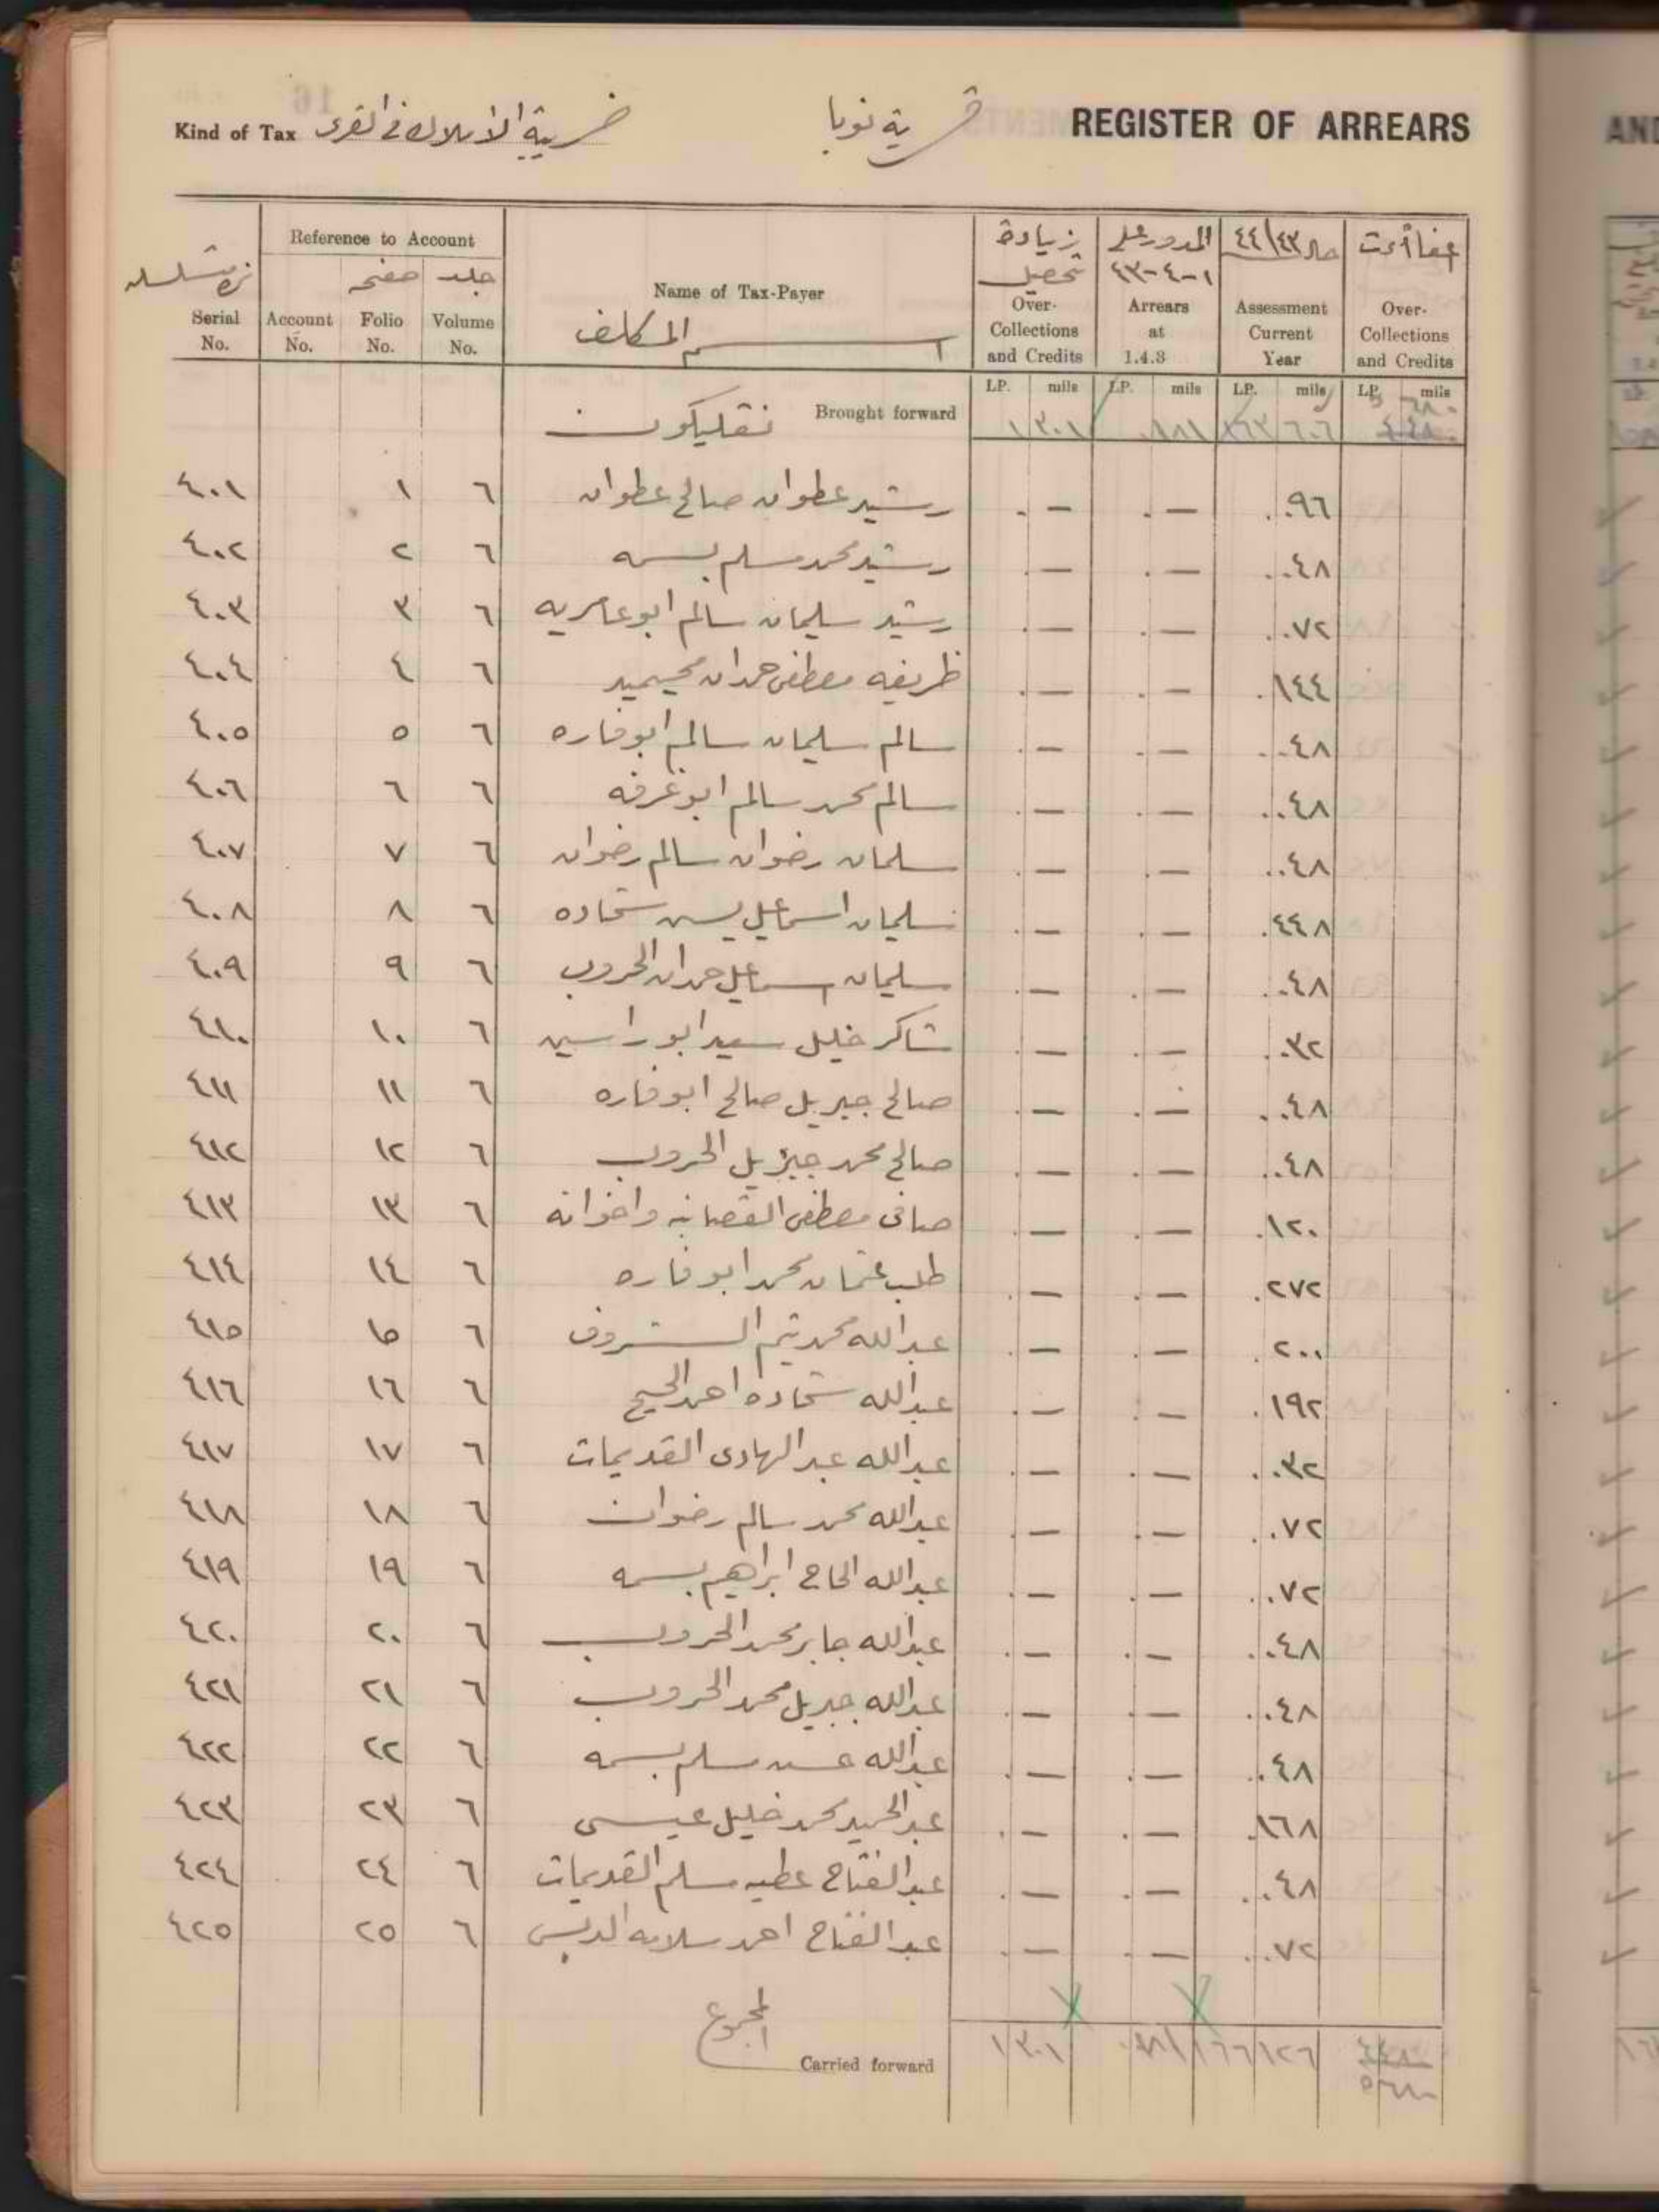 Kind of Tax ضريبة الاملاك في القرى قرية نوبا REGISTER OF ARREARS
Reference to Account
صفحه جلد
Serial No. Account No. Folio No. Volume No.
Name of Tax-Payer
اسم المكلف
زيادة تحصيل Over-Collections and Credits
المدور على ١-٤-٤٣ Arrears at 1.4.3
حال ٤٤/٤٣ Assessment Current Year
Over-Collections and Credits
LP. mils LP. mils LP. mils LP. mils
Brought forward ١ ٣٠١
٤٠١ ١ ٦ رشيد عطوان صالح عطوان - - ٠٩٦
٤٠٢ ٢ ٦ رشيد محمد مسلم بسمه - - ٠٤٨
٤٠٣ ٣ ٦ رشيد سليمان سالم ابو عامريه - - ٠٧٢
٤٠٤ ٤ ٦ ظريفه مصطفى حمدان - - ١٤٤
٤٠٥ ٥ ٦ سالم سليمان سالم ابو فاره - - ٠٤٨
٤٠٦ ٦ ٦ سالم محمد سالم ابو غرفه - - ٠٤٨
٤٠٧ ٧ ٦ سلمان رضوان سالم رضوان - - ٠٤٨
٤٠٨ ٨ ٦ سليمان اسماعيل يسن شحاده - - ٤٤٨
٤٠٩ ٩ ٦ سليمان اسماعيل حمدان الحروب - - ٠٤٨
٤١٠ ١٠ ٦ شاكر خليل سيد ابو راسين - - ٠٣٢
٤١١ ١١ ٦ صالح جبريل صالح ابو فاره - - ٠٤٨
٤١٢ ١٢ ٦ صالح محمد جبريل الحروب - - ٠٤٨
٤١٣ ١٣ ٦ صافى مصطفى واخوانه - - ١٢٠
٤١٤ ١٤ ٦ طلب عثمان محمد ابو فاره - - ٢٧٢
٤١٥ ١٥ ٦ عبدالله محمد تيم الشروف - - ٢٠٠
٤١٦ ١٦ ٦ عبدالله شحاده احمد - - ١٩٢
٤١٧ ١٧ ٦ عبدالله عبد الهادى القديمات - - ٠٣٢
٤١٨ ١٨ ٦ عبدالله محمد سالم رضوان - - ٠٧٢
٤١٩ ١٩ ٦ عبدالله الحاج ابراهيم بسمه - - ٠٧٢
٤٢٠ ٢٠ ٦ عبدالله جابر محمد الحروب - - ٠٤٨
٤٢١ ٢١ ٦ عبدالله جبريل محمد الحروب - - ٠٤٨
٤٢٢ ٢٢ ٦ عبدالله حسن مسلم بسمه - - ٠٤٨
٤٢٣ ٢٣ ٦ عبد الحميد محمد خليل عيسى - - ١٦٨
٤٢٤ ٢٤ ٦ عبد الفتاح عطيه مسلم القديمات - - ٠٤٨
٤٢٥ ٢٥ ٦ عبد الفتاح احمد سلامه الدبس - - ٠٧٢
المجموع
Carried forward ١ ٣٠١ ١٦٦ ١٢٦